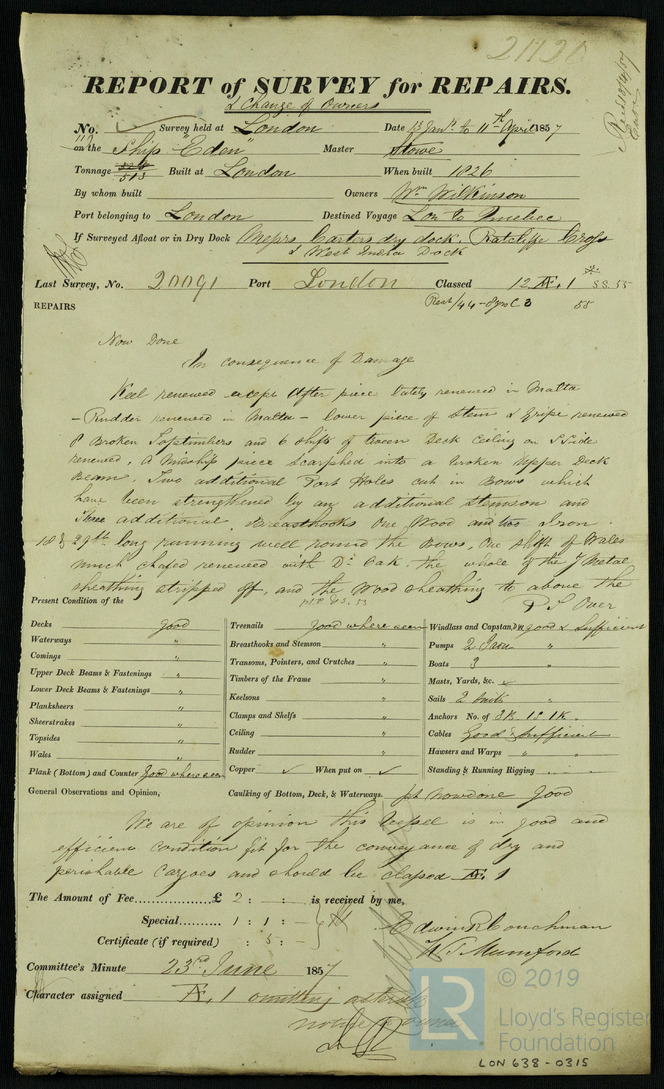 21720
REPORT of SURVEY for REPAIRS.
& Change of Owners
No. Survey held at London Date 13 Jany to 11th April 1857
on the Ship "Eden" Master Stowe
Tonnage 513 Built at London When built 1826
By whom built Owners Wm Wilkinson
Port belonging to London Destined Voyage Lon to Quebec
If Surveyed Afloat or in Dry Dock Messrs Carters dry dock, Ratcliffe Cross
& West India Dock
Last Survey, No. 20091 Port London Classed 12 Æ. 1 * SS. 55
REPAIRS Rest/44 55
Now Done
In consequence of Damage
Keel renewed except After piece lately renewed in Malta
- Rudder renewed in Malta - lower piece of Stem & Gripe renewed
8 Broken Top timbers and 6 shifts of tween Deck Ceiling on S. side
renewed. A Midship piece scarphed into a broken Upper Deck
Beam. Two additional Port Holes cut in Bows which
have been strengthened by an additional Stemson and
Three additional Breasthooks One Wood and two Iron
29ft long running well round the Bows, One shift of Wales
much chafed renewed with Do Oak. The whole of the Y Metal
sheathing stripped off, and the Wood sheathing to above the
Present Condition of the
Over
Decks good
Waterways "
Comings "
Upper Deck Beams & Fastenings "
Lower Deck Beams & Fastenings "
Planksheers "
Sheerstrakes "
Topsides "
Wales "
Plank (Bottom) and Counter good where seen
Treenails good where seen
Breasthooks and Stemson "
Transoms, Pointers, and Crutches "
Timbers of the Frame "
Keelsons "
Clamps and Shelfs "
Ceiling "
Rudder "
Copper ✓ When put on ✓
Windlass and Capstan good & Sufficient
Pumps 2 "
Boats 3 "
Masts, Yards, &c. ✓
Sails 2 Suits "
Anchors No. of 3B. 1S 1K.
Cables Good & Sufficient
Hawsers and Warps " "
Standing & Running Rigging
General Observations and Opinion, Caulking of Bottom, Deck, & Waterways. pt now done good
We are of opinion this Vessel is in good and
efficient condition fit for the conveyance of dry and
perishable Cargoes and should be classed Æ. 1
The Amount of Fee £ 2 : - : - is received by me,
Special 1 : 1 : -
Certificate (if required) : 5 : -
Edwin R Couchman
W. T. Mumford
Committee's Minute 23rd June 1857
Character assigned Æ. 1 omitting asterisk
© 2019
LR
Lloyd's Register
Foundation
LON 638-0315